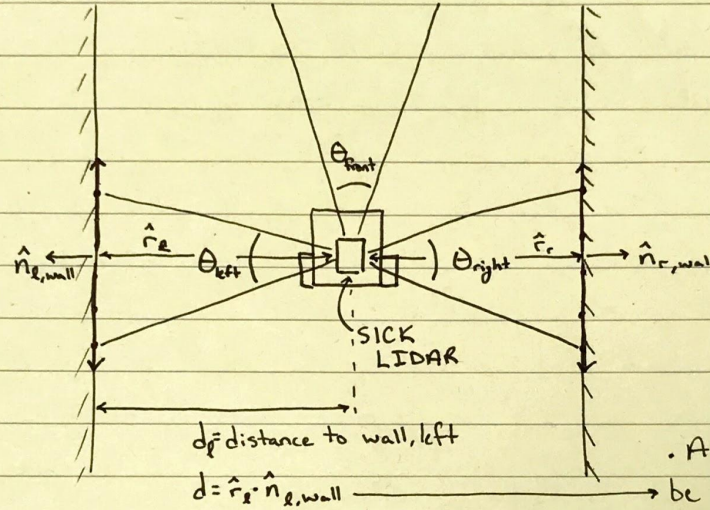 θfront
n̂ℓ,wall r̂ℓ θleft θright r̂r n̂r,wal
SICK
LIDAR
dℓ = distance to wall, left
. A
d = r̂ℓ · n̂ℓ,wall
be